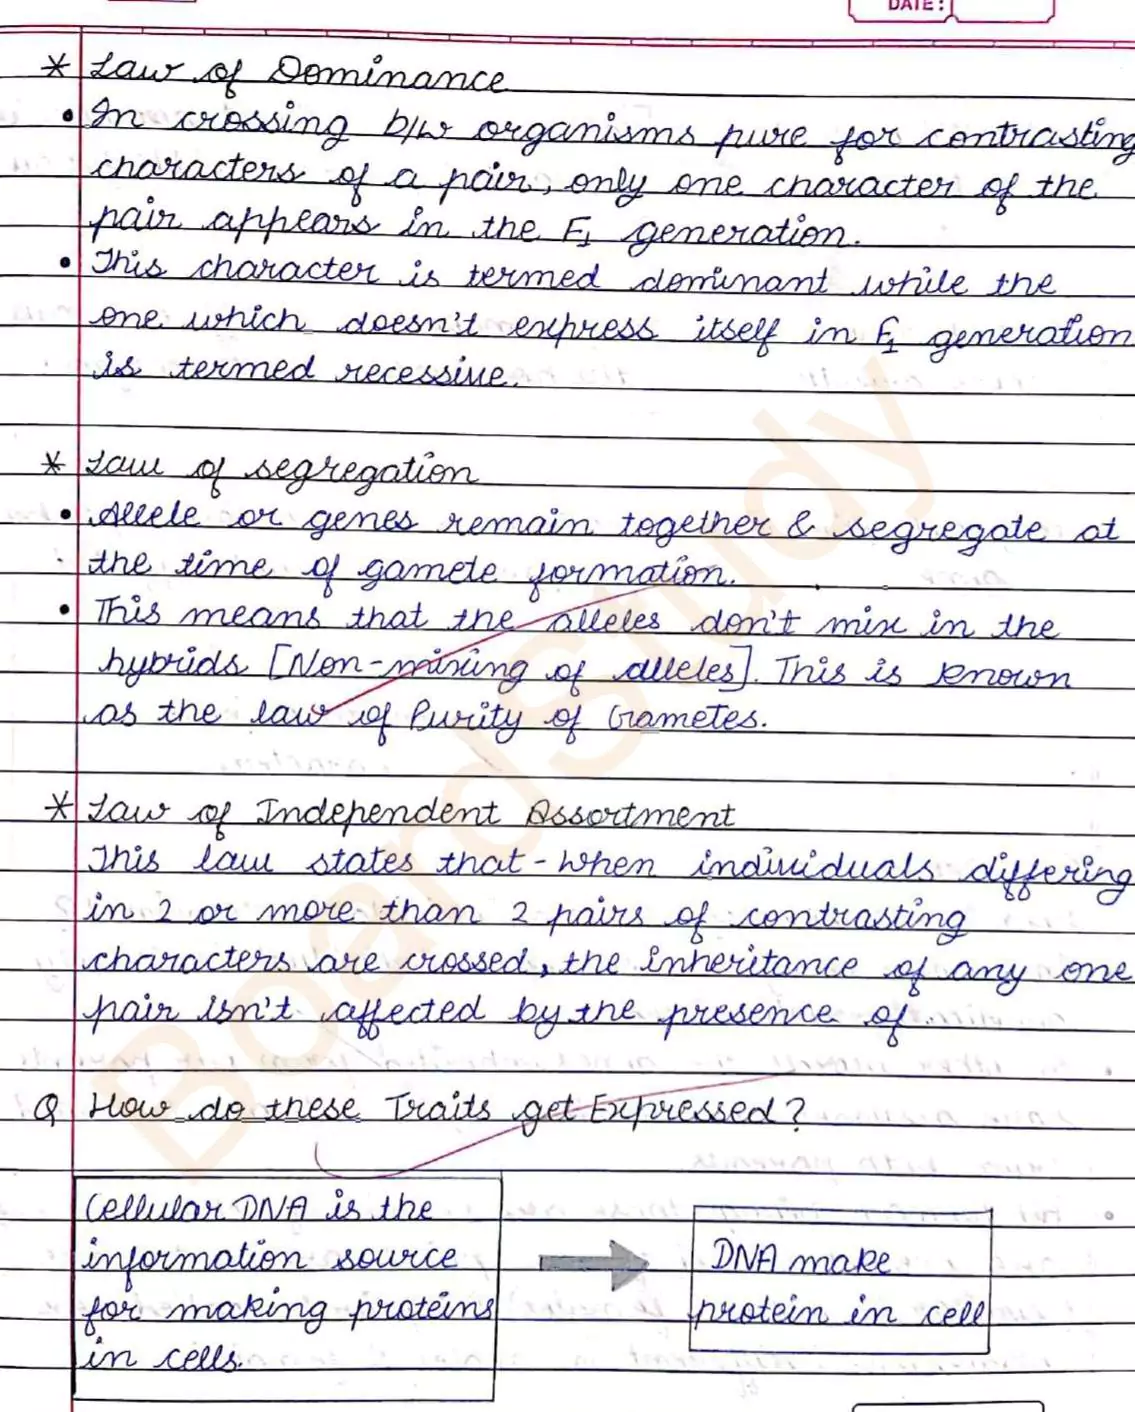 DATE:
* Law of Dominance
• In crossing b/w organisms pure for contrasting
characters of a pair, only one character of the
pair appears in the F1 generation.
• This character is termed dominant while the
one which doesn't express itself in F1 generation
is termed recessive.
* Law of segregation
• Allele or genes remain together & segregate at
the time of gamete formation.
• This means that the alleles don't mix in the
hybrids [Non-mixing of alleles]. This is known
as the law of Purity of Gametes.
* Law of Independent Assortment
This law states that - when individuals differing
in 2 or more than 2 pairs of contrasting
characters are crossed, the inheritance of any one
pair isn't affected by the presence of.
Q How do these Traits get Expressed?
Cellular DNA is the
information source
for making proteins
in cells.
DNA make
protein in cell
BoardStudy